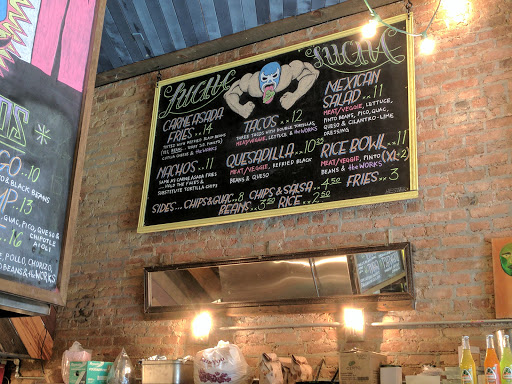 LUCHA LUCHA
CARNE ASADA
FRIES..14
NACHOS..11
SAME AS CARNE ASADA FRIES
...HOLD THE FRIES &
SUBSTITUTE TORTILLA CHIPS
TACOS..x 12
THREE TACOS WITH DOUBLE TORTILLAS,
MEAT/VEGGIE, LETTUCE & the WORKS
QUESADILLA...10.50
MEAT/VEGGIE, REFRIED BLACK
BEANS & QUESO
MEXICAN
SALAD..11
MEAT/VEGGIE, LETTUCE,
PINTO BEANS, PICO, GUAC,
QUESO & CILANTRO-LIME
DRESSING
RICE BOWL..11
MEAT/VEGGIE, PINTO
BEANS & the WORKS
SIDES... CHIPS & GUAC..8 CHIPS & SALSA..4.50 FRIES..x3
BEANS..3.50 RICE..2.50
OS
CO.10
& BLACK BEANS
MP.13
GUAC, PICO, QUESO &
CHIPOTLE
AIOLI
16
POLLO, CHORIZO,
BEANS & the WORKS